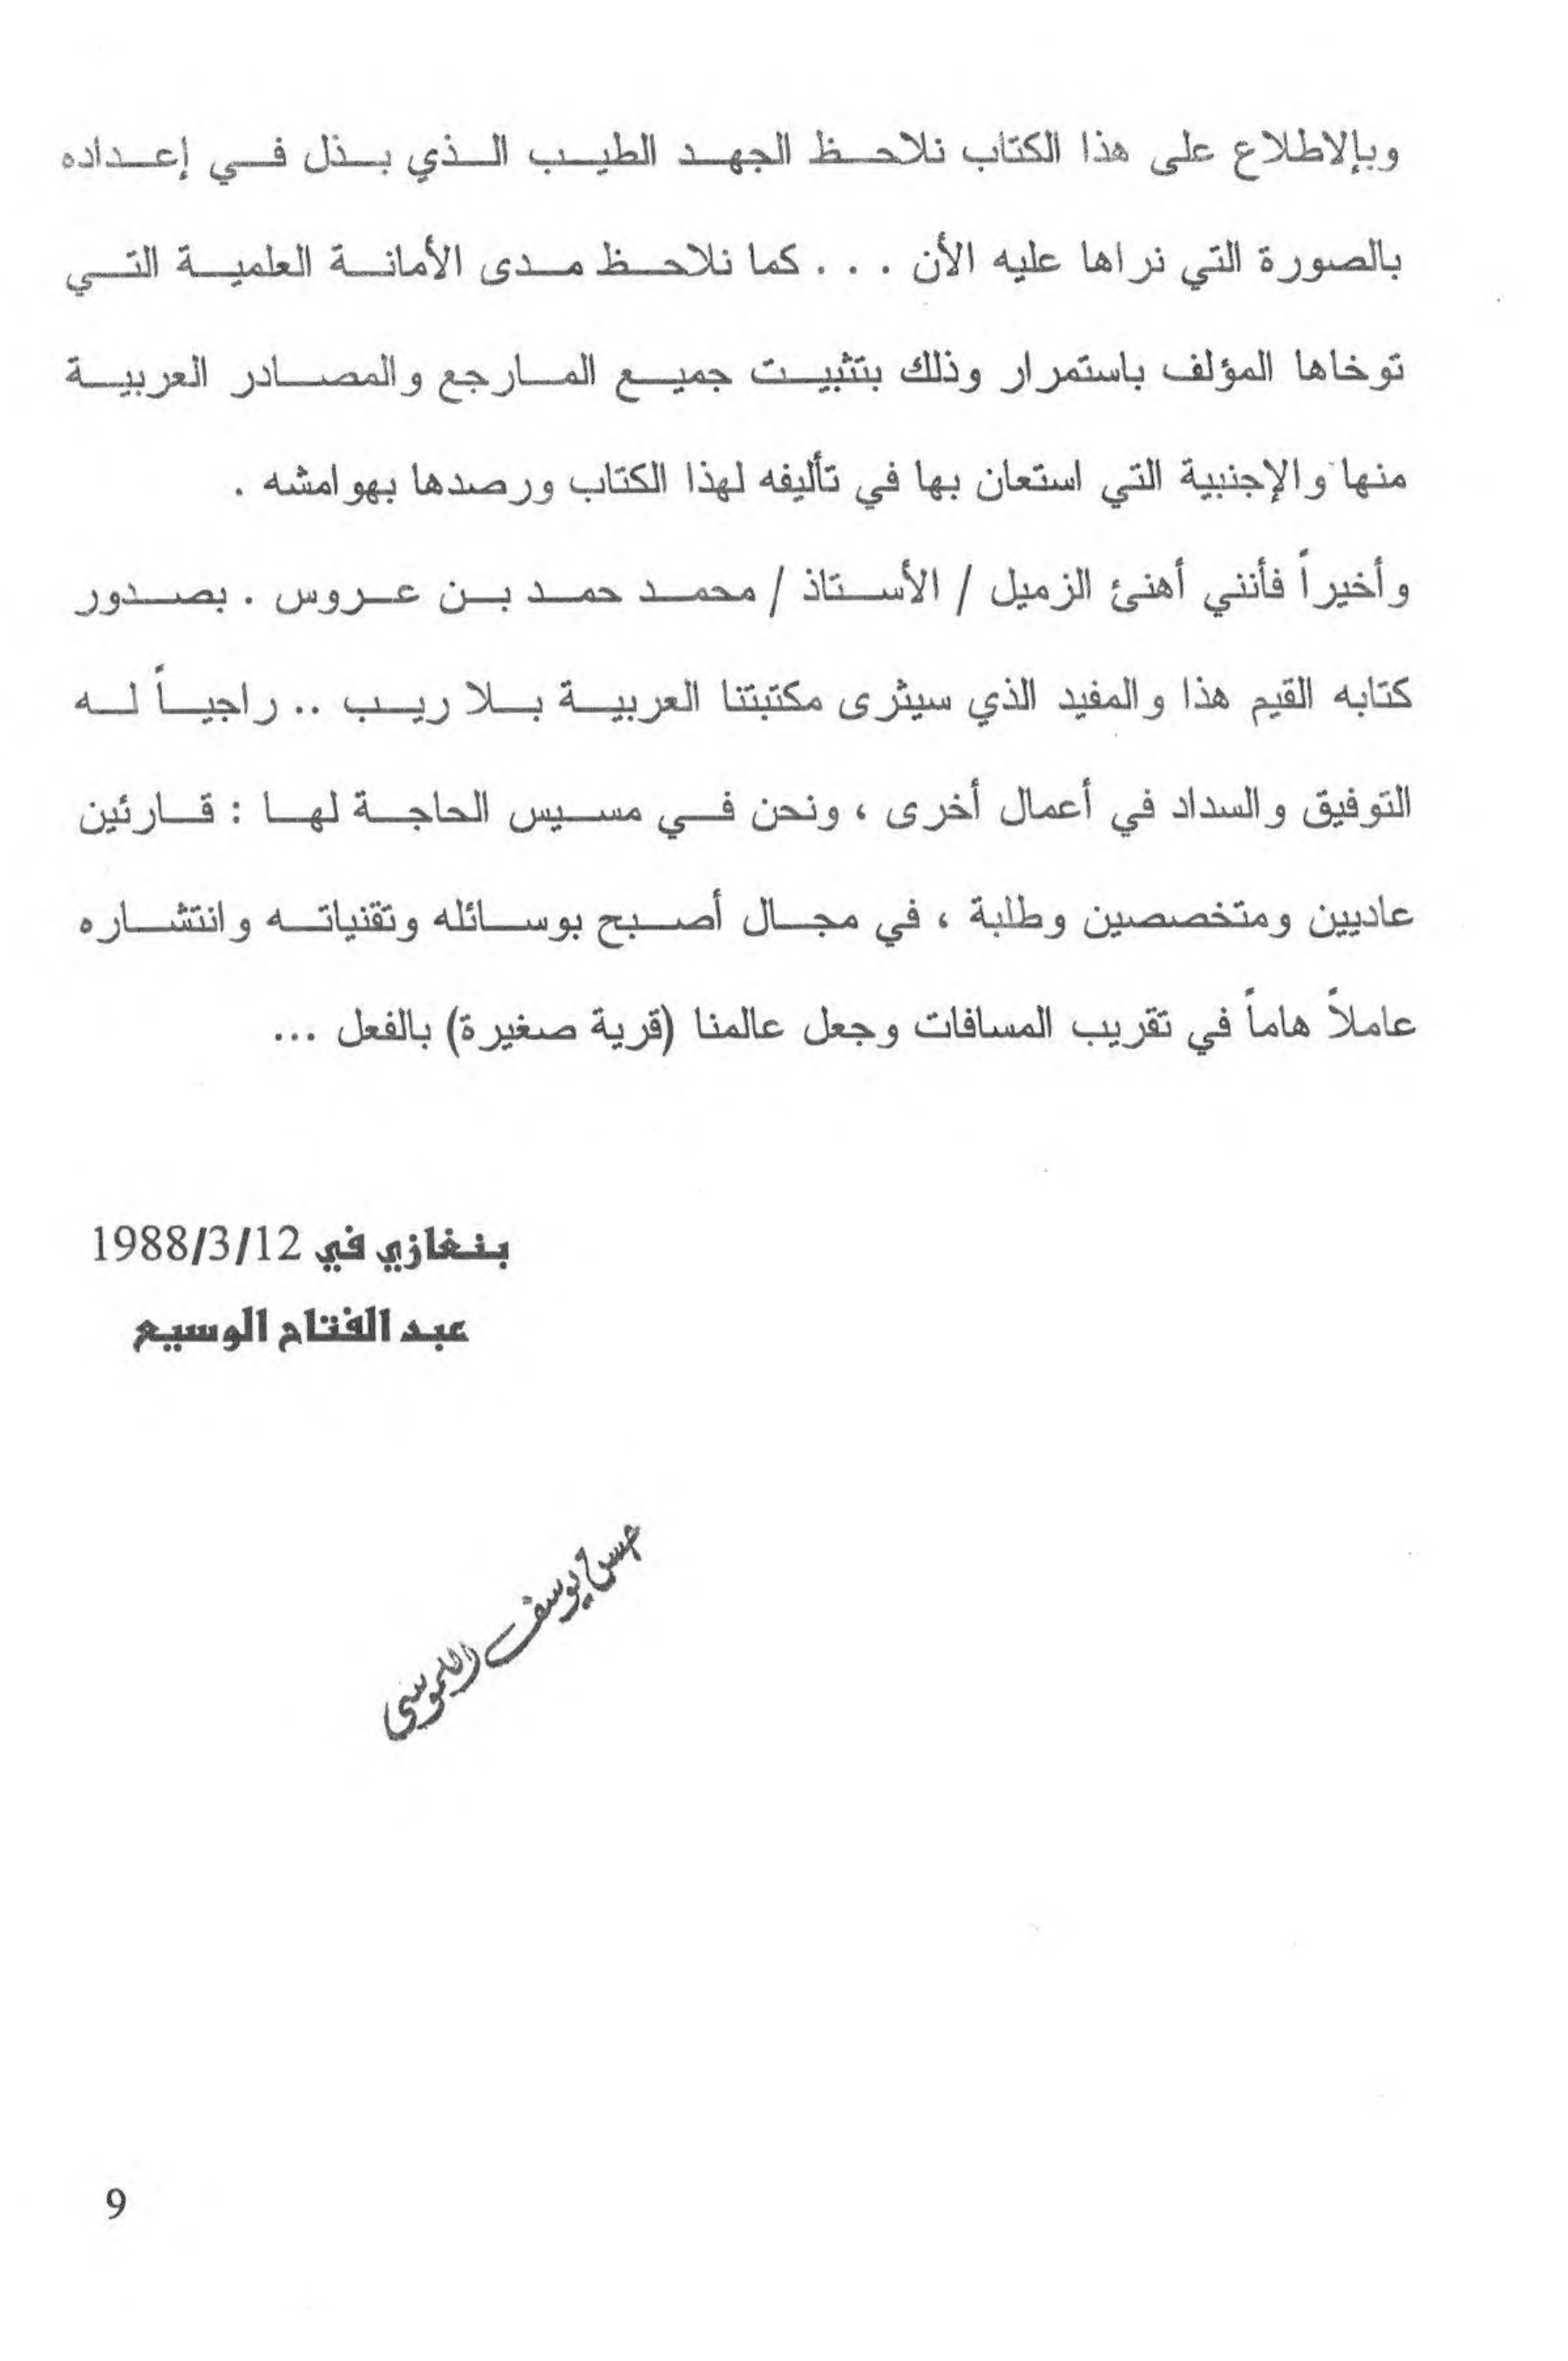 وبإلاطلاع على هذا الكتاب نلاحظ الجهد الطيب الذي بذل في إعداده
بالصورة التي نراها عليه الأن . . . كما نلاحظ مدى الأمانة العلمية التي
توخاها المؤلف باستمرار وذلك بتثبيت جميع المارجع والمصادر العربية
منها والإجنبية التي استعان بها في تأليفه لهذا الكتاب ورصدها بهوامشه .
وأخيراً فأنني أهنئ الزميل / الأستاذ / محمد حمد بن عروس . بصدور
كتابه القيم هذا والمفيد الذي سيثرى مكتبتنا العربية بلا ريب .. راجياً له
التوفيق والسداد في أعمال أخرى ، ونحن في مسيس الحاجة لها : قارئين
عاديين ومتخصصين وطلبة ، في مجال أصبح بوسائله وتقنياته وانتشاره
عاملاً هاماً في تقريب المسافات وجعل عالمنا (قرية صغيرة) بالفعل ...
بنغازي في 1988/3/12
عبد الفتاح الوسيع
حسن يوسف
9